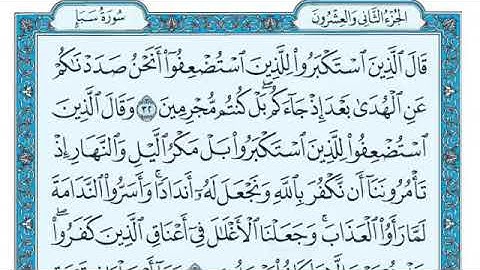 الجزء الثاني والعشرون
سورة سبإ
قَالَ ٱلَّذِينَ ٱسْتَكْبَرُوا۟ لِلَّذِينَ ٱسْتُضْعِفُوٓا۟ أَنَحْنُ صَدَدْنَٰكُمْ
عَنِ ٱلْهُدَىٰ بَعْدَ إِذْ جَآءَكُم ۖ بَلْ كُنتُم مُّجْرِمِينَ ٣٢ وَقَالَ ٱلَّذِينَ
ٱسْتُضْعِفُوا۟ لِلَّذِينَ ٱسْتَكْبَرُوا۟ بَلْ مَكْرُ ٱلَّيْلِ وَٱلنَّهَارِ إِذْ
تَأْمُرُونَنَآ أَن نَّكْفُرَ بِٱللَّهِ وَنَجْعَلَ لَهُۥٓ أَندَادًا ۚ وَأَسَرُّوا۟ ٱلنَّدَامَةَ
لَمَّا رَأَوُا۟ ٱلْعَذَابَ ۚ وَجَعَلْنَا ٱلْأَغْلَٰلَ فِىٓ أَعْنَاقِ ٱلَّذِينَ كَفَرُوا۟ ۖ